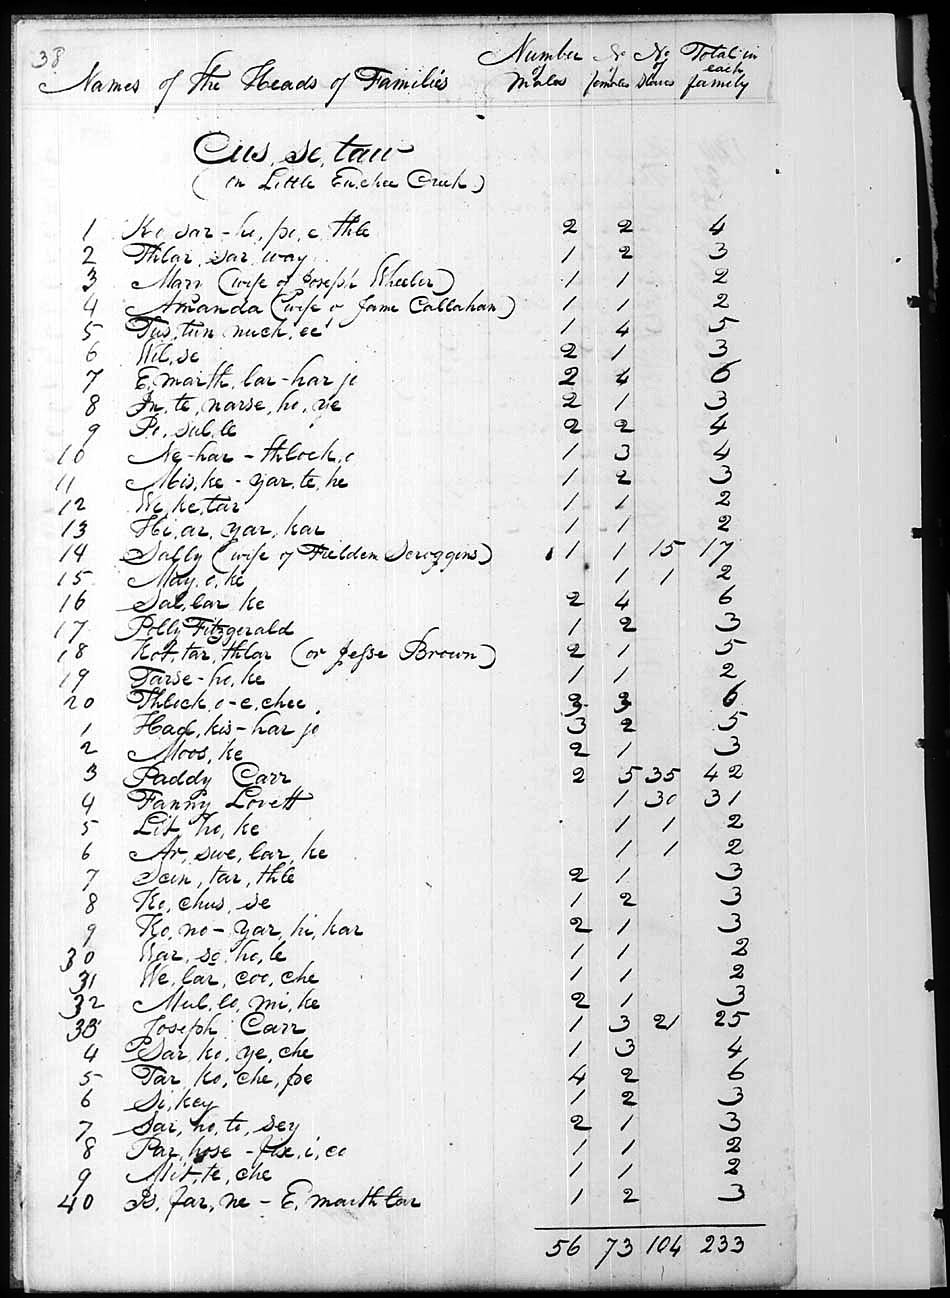 38
Names of the Heads of Families Number of Males No females No Slaves Total in each family
Cus, se, taw
(on Little Eu,chee Creek)
1 Ko sar - he, po, e, thle 2 2 4
2 Thlar, sar, way 1 2 3
3 Mary (wife of Joseph Wheeler) 1 1 2
4 Amanda (wife o Jame Callahan) 1 1 2
5 Tus, tun nuck, ee 1 4 5
6 Wil, se 2 1 3
7 E, marth, lar - har jo 2 4 6
8 In, te, narse, ho, ye 2 1 3
9 Po, sul, le 2 2 4
10 Ne-har - thlock, o 1 3 4
11 Mis, ke - yar, te, ke 1 2 3
12 We, ke, tar 1 1 2
13 Hi, ar, yar, kar 1 1 2
14 Sally (wife of Fielden Scroggins) 1 1 15 17
15 May, o, ke 1 1 2
16 Sal, lar, ke 2 4 6
17 Polly Fitzgerald 1 2 3
18 Kot, tar, thlar (or Jesse Brown) 2 1 5
19 Tarse - ho, ke 1 1 2
20 Thlock, o - e, chee 3 3 6
1 Had, kis - har jo 3 2 5
2 Moos, ke 2 1 3
3 Paddy Carr 2 5 35 42
4 Fanny Lovett 1 30 31
5 Lit, ho, ke 1 1 2
6 Ar, swe, lar, ke 1 1 2
7 Scin, tar, thle 2 1 3
8 Ko, chus, se 1 2 3
9 Ko, no - yar, hi, kar 2 1 3
30 War, so, ho, le 1 1 2
31 We, lar, coo, che 1 1 2
32 Mul, lo, mi, ke 2 1 3
33 Joseph Carr 1 3 21 25
4 Sar, ko, ye, che 1 3 4
5 Tar, ko, che, pe 4 2 6
6 Si, key 1 2 3
7 Sar, ho, to, sey 2 1 3
8 Par, hose - fix, i, co 1 1 2
9 Mit, te, che 1 1 2
40 Is, far, ne - E, marth lar 1 2 3
56 73 104 233